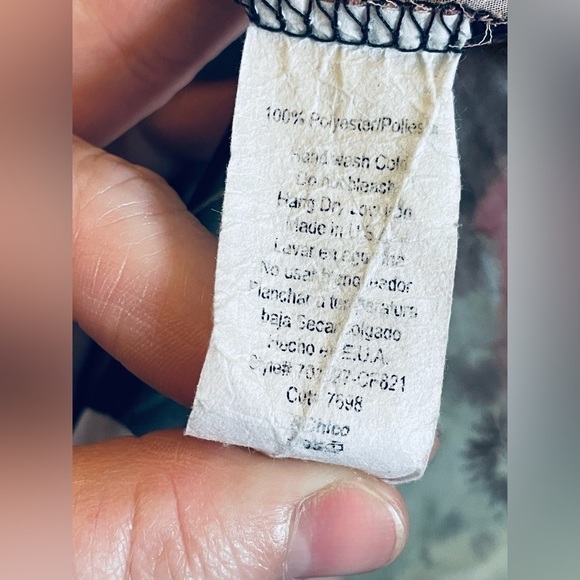 100% Polyester/Polies
Hand Wash Cold
Do not bleach
Hang Dry Low Iron
Made in U.S.
Lavar en agua
No usar blanqueador
Planchar a temperatura
baja Secar colgado
Hecho en E.U.A.
Style# -CF821
Cut# 7698
Chico